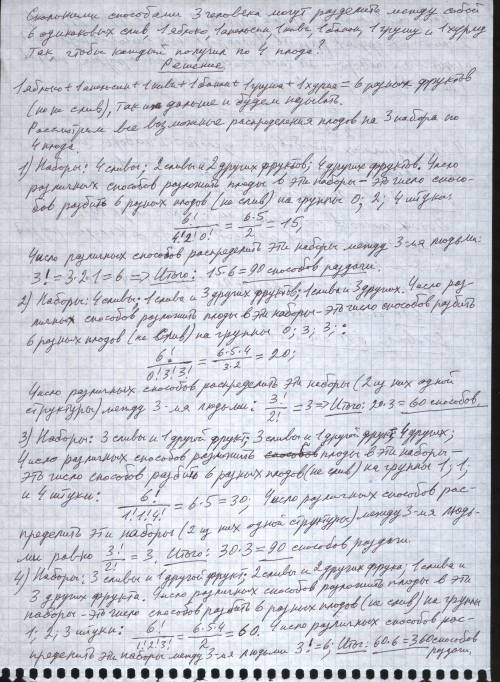 Сколькими способами 3 человека могут разделить между собой
6 одинаковых слив, 1 яблоко, 1 апельсин, 1 киви, 1 банан, 1 грушу и 1 хурму
так, чтобы каждый получил по 4 плода?
Решение
1 яблоко + 1 апельсин + 1 киви + 1 банан + 1 груша + 1 хурма = 6 разных фруктов
(но не слив), так их дальше и будем называть.
Рассмотрим все возможные распределения плодов на 3 набора по
4 плода.
1) Наборы: 4 сливы; 2 сливы и 2 других фруктов; 4 других фруктов. Число
различных способов разложить плоды в эти наборы – это число спосо-
бов разбить 6 разных плодов (не слив) на группы 0; 2; 4 штуки:
6!/4!2!0! = 6·5/2 = 15;
Число различных способов распределить эти наборы между 3-мя людьми:
3! = 3·2·1 = 6 => Итого: 15·6 = 90 способов раздачи.
2) Наборы: 4 сливы; 1 слива и 3 других фруктов; 1 слива и 3 других. Число раз-
личных способов разложить плоды в эти наборы – это число способов разбить
6 разных плодов (не слив) на группы 0; 3; 3;:
6!/0!3!3! = 6·5·4/3·2 = 20;
Число различных способов распределить эти наборы (2 из них одной
структуры) между 3-мя людьми: 3!/2! = 3 => Итого: 20·3 = 60 способов.
3) Наборы: 3 сливы и 1 другой фрукт; 3 сливы и 1 другой фрукт; 4 других;
Число различных способов разложить плоды в эти наборы –
это число способов разбить 6 разных плодов (не слив) на группы 1; 1;
и 4 штуки: 6!/1!1!4! = 6·5 = 30; Число различных способов рас-
пределить эти наборы (2 из них одной структуры) между 3-мя людь-
ми равно 3!/2! = 3. Итого: 30·3 = 90 способов раздачи.
4) Наборы: 3 сливы и 1 другой фрукт; 2 сливы и 2 других фрукта; 1 слива и
3 других фрукта. Число различных способов разложить плоды в эти
наборы – это число способов разбить 6 разных плодов (не слив) на группы
1; 2; 3 штуки: 6!/1!2!3! = 6·5·4/2 = 60. Число различных способов рас-
пределить эти наборы между 3-мя людьми 3! = 6; Итог: 60·6 = 360 способов
раздачи.